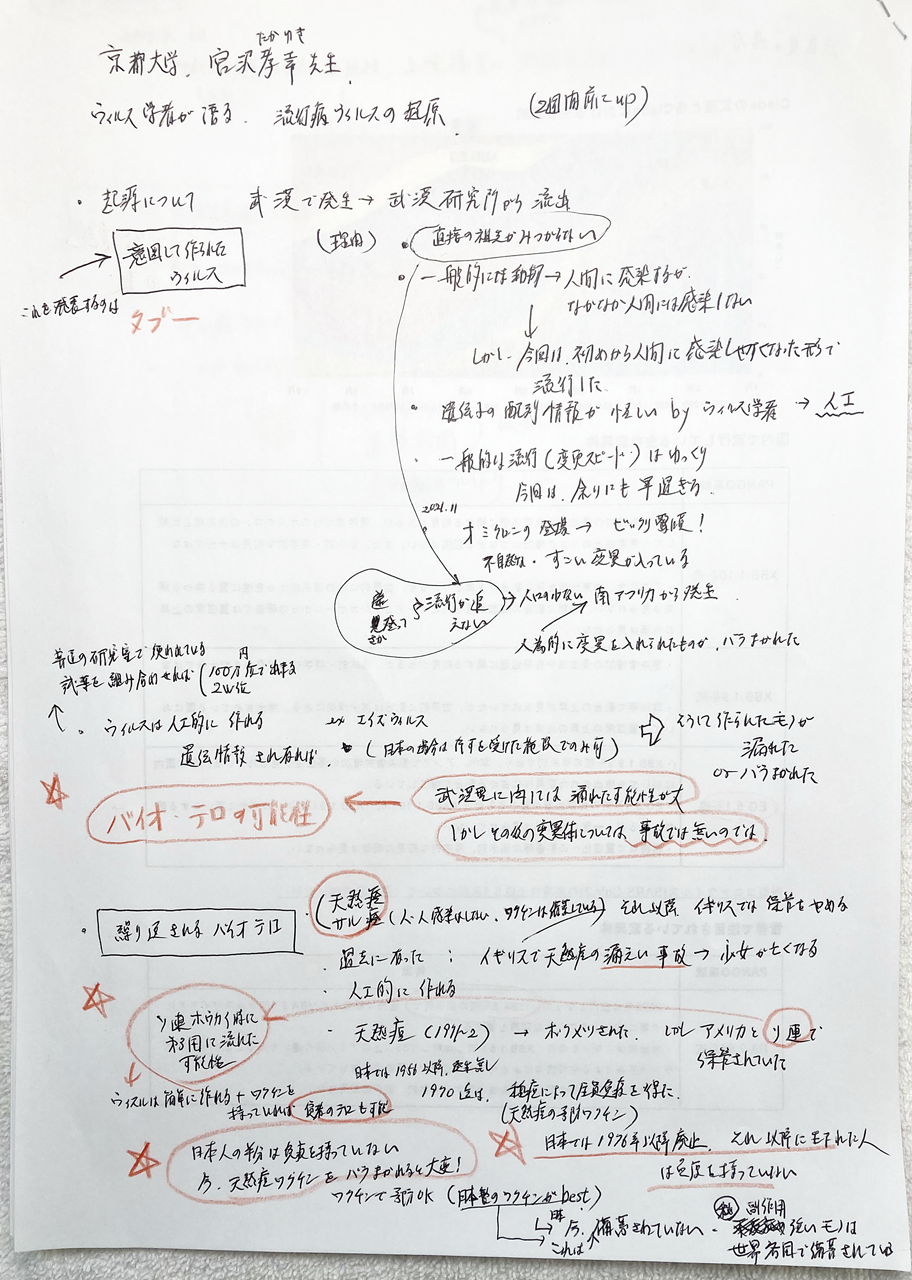 たかゆき
京都大学. 宮沢孝幸先生.
ウィルス学者が語る. 流行病ウィルスの起原
(2週間前にup)
・起源について 武漢で発生→武漢研究所から流出
意図して作られた
ウィルス
これを発表するのは
タブー
(理由)
・直接の祖先がみつからない
・一般的には動物→人間に感染するが、
なかなか人間には感染しない
↓
しかし 今回は、初めから人間に感染しやすくなった形で
流行した.
・遺伝子の配列情報が怪しい by ウィルス学者 → 人工
・一般的な流行(変更スピード)はゆっくり
今回は、余りにも早過ぎる.
2021.11
・オミクロンの登場→ビックリ驚嘆!
不自然な・すごい変異が入っている
流行が追
えない
→人口の少ない 南アフリカから発生
人為的に変異を入れられたものが、バラまかれた
普通の研究室で使われている
試薬を組み合わせれば
(100万円位で出来る
2W位
↑
・ウィルスは人工的に作れる ex エイズウィルス
遺伝情報さえ有れば.
・(日本の場合は許可を受けた施設でのみ可)
⇨ そうして作られたモノが
漏れた
or バラまかれた
☆ バイオ・テロの可能性 ← 武漢型に関しては漏れた可能性が大
しかしその後の変異体については、事故では無いのでは.
・繰り返されるバイオテロ
・(天然痘
サル痘 (人-人感染はしない、ワクチンは備蓄している) それ以降 イギリスでは保管をやめる
・過去に有った ; イギリスで天然痘の漏えい事故→少女が亡くなる
・人工的に作れる
☆ ソ連ホウカイ時に
利用に流れた
可能性
・天然痘 (1971~2) → ボクメツされた. しかしアメリカとソ連で
保管されていた
日本では1956以降、発生無し
1970近は、種痘によって全員免疫を得た.
(天然痘の予防ワクチン)
↓
ウィルスは簡単に作れる + ワクチンを
持っていれば 貧者のテロも可能
☆ 日本人の半分は免疫を持っていない
今、天然痘ワクチンをバラまかれると大変!
ワクチンで予防OK (日本製のワクチンがbest)
☆ 日本では1976年以降廃止. それ以降に生まれた人
は免疫を持っていない
今、備蓄されていない.
これは
副作用
強いモノは
世界各国で備蓄されている